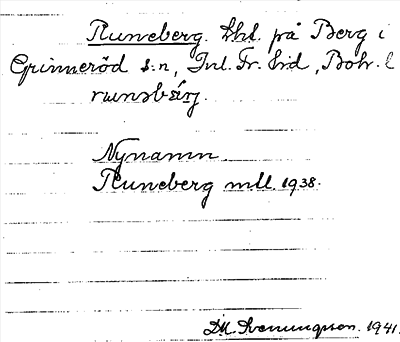 Runeberg. lht. på Berg i
Grinneröd s:n, Inl. Fr. hd, Boh. l
runəbærj.
Nynamn.
Runeberg mll. 1938.
D.H. Svenungsson. 1941.